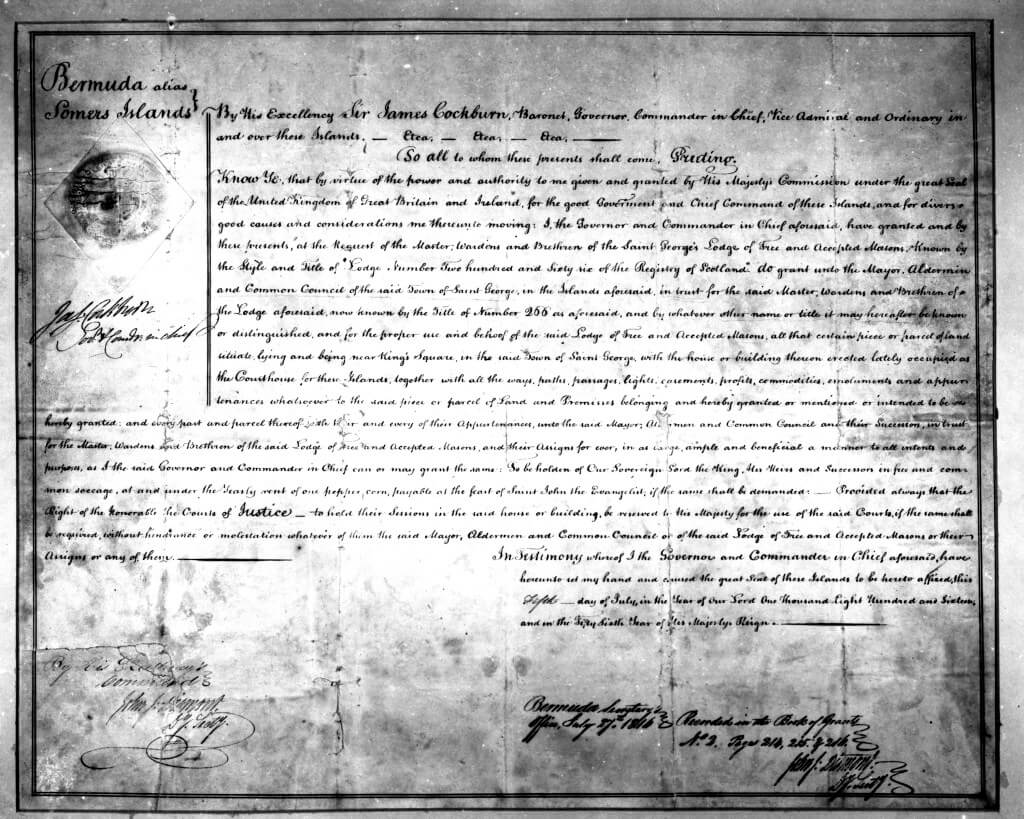 Bermuda alias
Somers Islands
By His Excellency Sir James Cockburn, Baronet, Governor, Commander in Chief, Vice Admiral and Ordinary in
and over these Islands, — Etca, — Etca, — Etca,
To all to whom these presents shall come, Greeting.
Know Ye, that by virtue of the power and authority to me given and granted by His Majesty's Commission under the great Seal
of the United Kingdom of Great Britain and Ireland, for the good Goverment and Chief Command of these Islands, and for divers
good causes and considerations me thereunto moving: I, the Governor and Commander in Chief aforesaid, have granted and by
these presents, at the Request of the Master, Wardens and Brethren of the Saint George's Lodge of Free and Accepted Masons, Known by
the Style and Title of "Lodge Number Two hundred and Sixty six of the Registry of Scotland" do grant unto the Mayor, Aldermen
and Common Council of the said Town of Saint George, in the Islands aforesaid, in trust for the said Master, Wardens and Brethren of
the Lodge aforesaid, now known by the Title of Number 266 as aforesaid, and by whatever other name or title it may hereafter be known
or distinguished, and for the proper use and behoof of the said Lodge of Free and Accepted Masons, all that certain piece or parcel of land
situate, lying and being near King's Square, in the said Town of Saint George, with the house or building thereon erected lately occupied as
the Courthouse for these Islands, together with all the ways, paths, passages, lights, easements, profits, commodities, emoluments and appur-
tenances whatsoever to the said piece or parcel of Land and Premises belonging and hereby granted or mentioned or intended to be
hereby granted: and every part and parcel thereof with their and every of their Appurtenances, unto the said Mayor, Aldermen and Common Council and their Successors, in trust
for the Master, Wardens and Brethren of the said Lodge of Free and Accepted Masons, and their Assigns for ever, in as large, ample and beneficial a manner to all intents and
purposes, as I the said Governor and Commander in Chief can or may grant the same: To be holden of Our Sovereign Lord the King, His Heirs and Successors in free and com-
mon soccage, at and under the Yearly rent of one pepper corn, payable at the feast of Saint John the Evangelist; if the same shall be demanded: — Provided always that the
Right of the Honorable The Courts of Justice — to hold their Sessions in the said house or building, be reserved to His Majesty for the use of the said Courts, if the same shall
be required, without hindrance or molestation whatever of them the said Mayor, Aldermen and Common Council or of the said Lodge of Free and Accepted Masons or their
Assigns or any of them.
In Testimony whereof I the Governor and Commander in Chief aforesaid, have
hereunto set my hand and caused the great Seal of these Islands to be hereto affixed, this
fifth — day of July, in the Year of Our Lord One Thousand Eight Hundred and Sixteen,
and in the Fifty Sixth Year of His Majesty's Reign.
Jas Cockburn
Gov. & Comdr in chief
By His Excellency's
Command
Bermuda Secretary's
Office, July 27th 1816
Recorded in the Book of Grants
No 2. Pages 214, 215 & 216.